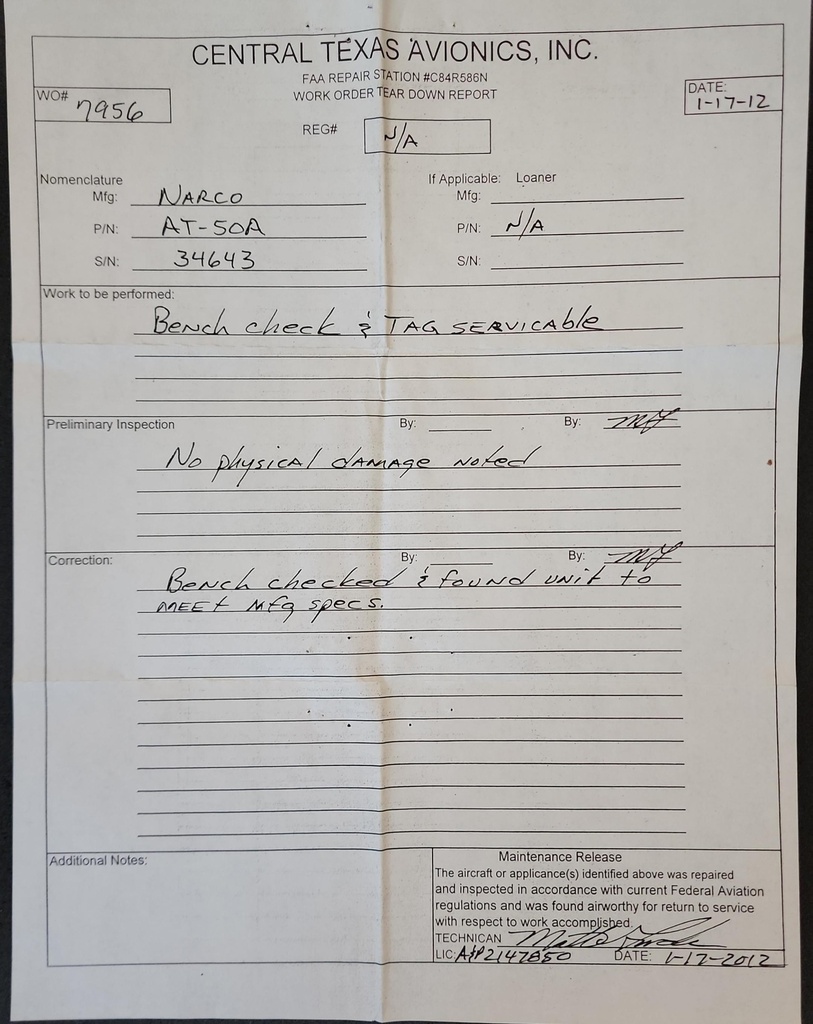 CENTRAL TEXAS AVIONICS, INC.
FAA REPAIR STATION #C84R586N
WORK ORDER TEAR DOWN REPORT
WO# 7956
DATE: 1-17-12
REG# N/A
Nomenclature
If Applicable: Loaner
Mfg: NARCO
Mfg:
P/N: AT-50A
P/N: N/A
S/N: 34643
S/N:
Work to be performed:
Bench check & TAG SERVICABLE
Preliminary Inspection By: By:
No physical damage noted
Correction: By: By:
Bench checked & found unit to
MEET Mfg specs.
Additional Notes:
Maintenance Release
The aircraft or applicance(s) identified above was repaired
and inspected in accordance with current Federal Aviation
regulations and was found airworthy for return to service
with respect to work accomplished.
TECHNICAN
LIC: A&P2147850 DATE: 1-17-2012